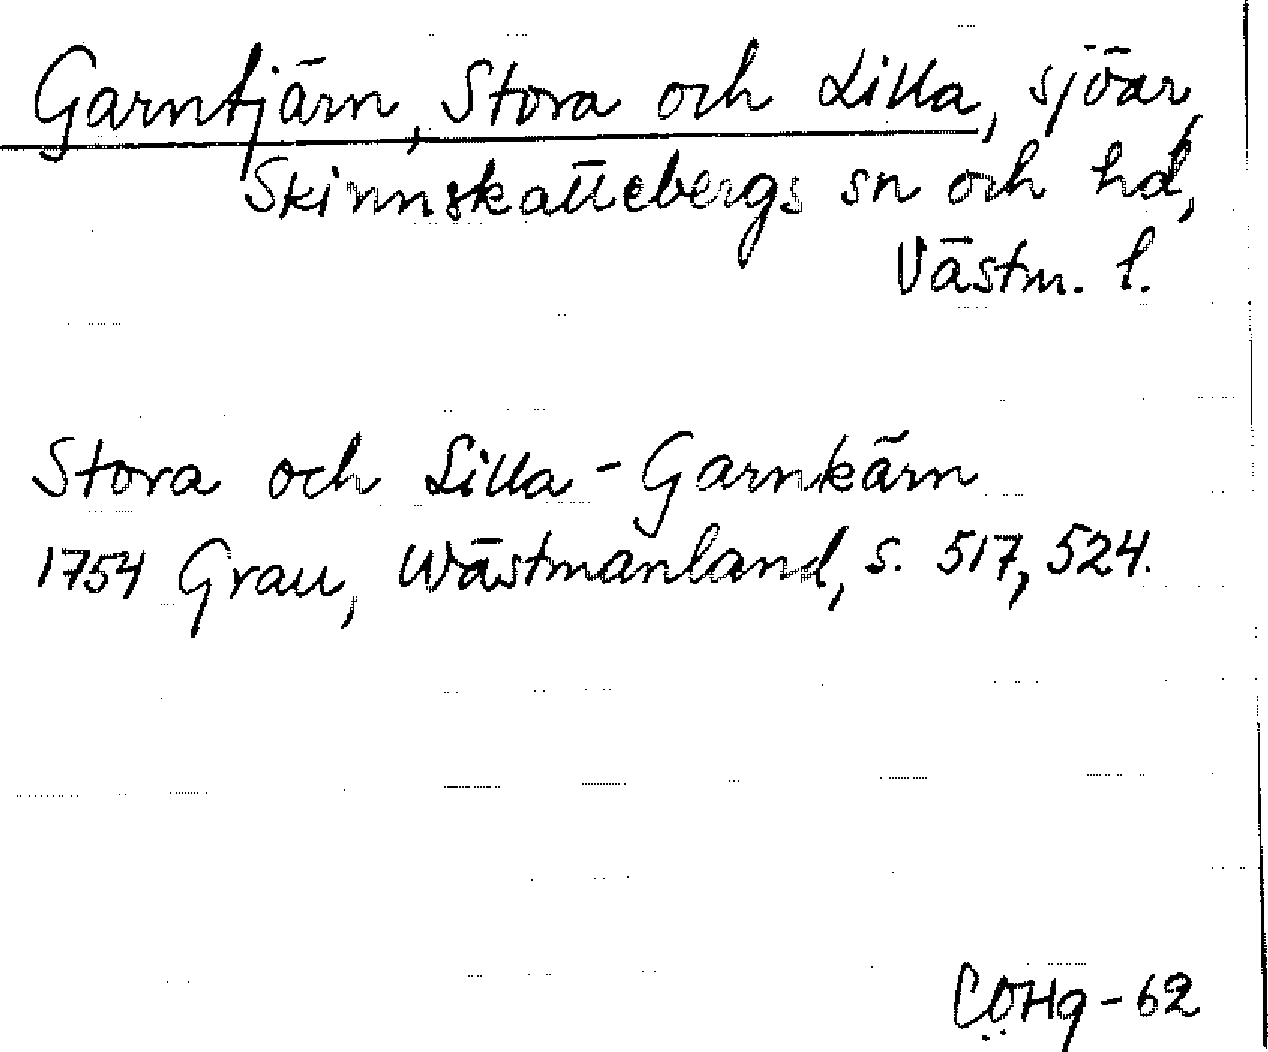 Garntjärn, Stora och Lilla, sjöar,
Skinnskattebergs sn och hd,
Västm. l.
Stora och Lilla-Garnkärn
1754 Grau, Wästmanland, s. 517, 524.